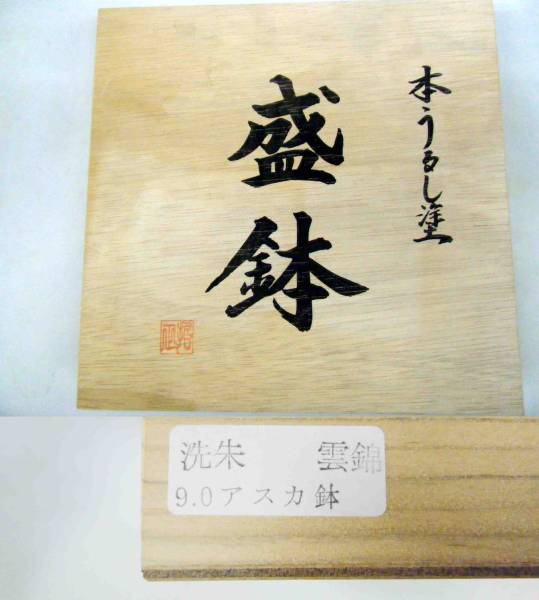 本うるし塗
盛鉢
洗朱 雲錦
9.0アスカ鉢